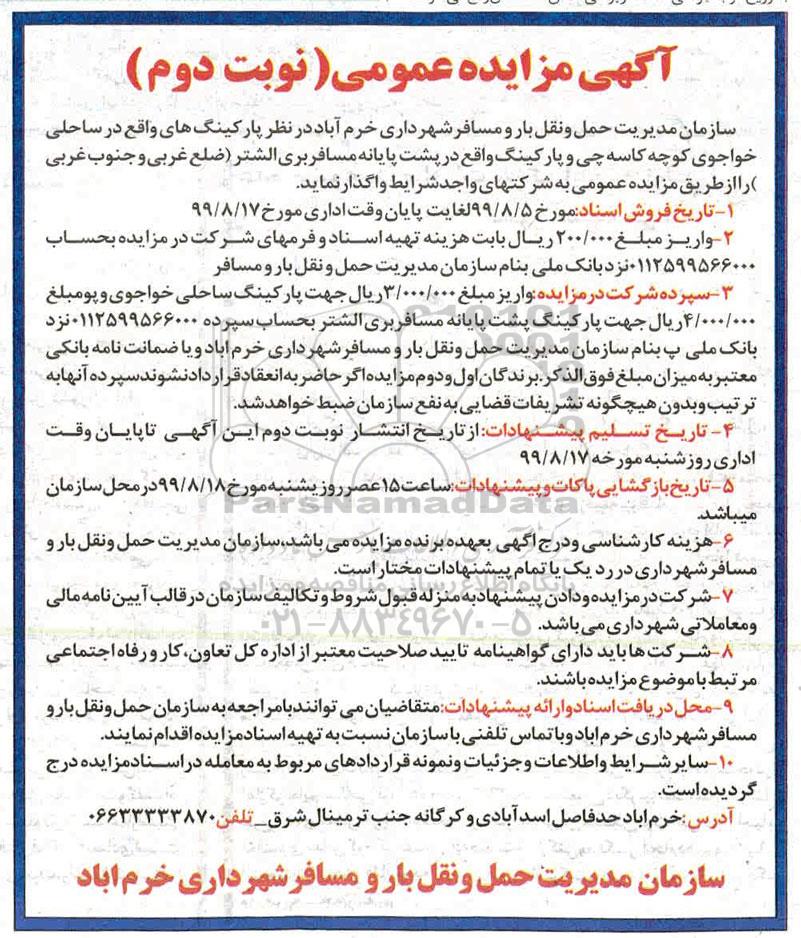 آگهی مزایده عمومی (نوبت دوم)
سازمان مدیریت حمل ونقل بار و مسافر شهرداری خرم آباد در نظر پارکینگ های واقع در ساحلی
خواجوی کوچه کاسه چی و پارکینگ واقع در پشت پایانه مسافربری الشتر (ضلع غربی و جنوب غربی
) را از طریق مزایده عمومی به شرکتهای واجد شرایط واگذار نماید.
۱-تاریخ فروش اسناد:مورخ ۹۹/۸/۵لغایت پایان وقت اداری مورخ ۹۹/۸/۱۷
۲-واریز مبلغ ۲۰۰/۰۰۰ ریال بابت هزینه تهیه اسناد و فرمهای شرکت در مزایده بحساب
۰۱۱۲۵۹۹۵۶۶۰۰۰نزد بانک ملی بنام سازمان مدیریت حمل و نقل بار و مسافر
۳-سپرده شرکت در مزایده:واریز مبلغ ۳/۰۰۰/۰۰۰ریال جهت پارکینگ ساحلی خواجوی و پومبلغ
۴/۰۰۰/۰۰۰ریال جهت پارکینگ پشت پایانه مسافربری الشتر بحساب سپرده ۰۱۱۲۵۹۹۵۶۶۰۰۰نزد
بانک ملی پ بنام سازمان مدیریت حمل و نقل بار و مسافر شهرداری خرم آباد و یا ضمانت نامه بانکی
معتبر به میزان مبلغ فوق الذکر.برندگان اول و دوم مزایده اگر حاضر به انعقاد قرار داد نشوند سپرده آنها به
ترتیب و بدون هیچگونه تشریفات قضایی به نفع سازمان ضبط خواهد شد.
۴- تاریخ تسلیم پیشنهادات: از تاریخ انتشار نوبت دوم این آگهی تا پایان وقت
اداری روز شنبه مورخه ۹۹/۸/۱۷
۵-تاریخ بازگشایی پاکات و پیشنهادات:ساعت ۱۵عصر روز یشنبه مورخ ۹۹/۸/۱۸در محل سازمان
میباشد.
ParsNamadData
۶-هزینه کارشناسی و درج اگهی بعهده برنده مزایده می باشد،سازمان مدیریت حمل و نقل بار و
مسافر شهرداری در رد یک یا تمام پیشنهادات مختار است.
پایگاه اطلاع رسانی مناقصه و مزایده
۷-شرکت در مزایده و دادن پیشنهاد به منزله قبول شروط و تکالیف سازمان در قالب آیین نامه مالی
و معاملاتی شهرداری می باشد.
۰۲۱-۸۸۳۴۹۶۷۰-۵
۸-شرکت ها باید دارای گواهینامه تایید صلاحیت معتبر از اداره کل تعاون،کار و رفاه اجتماعی
مرتبط با موضوع مزایده باشند.
۹-محل دریافت اسناد وارائه پیشنهادات:متقاضیان می توانند با مراجعه به سازمان حمل و نقل بار و
مسافر شهرداری خرم اباد و با تماس تلفنی با سازمان نسبت به تهیه اسناد مزایده اقدام نمایند.
۱۰-سایر شرایط و اطلاعات و جزئیات و نمونه قرار دادهای مربوط به معامله در اسناد مزایده درج
گردیده است.
آدرس:خرم اباد حدفاصل اسدآبادی و کرگانه جنب ترمینال شرق_تلفن۰۶۶۳۳۳۳۳۸۷۰
سازمان مدیریت حمل و نقل بار و مسافر شهرداری خرم اباد